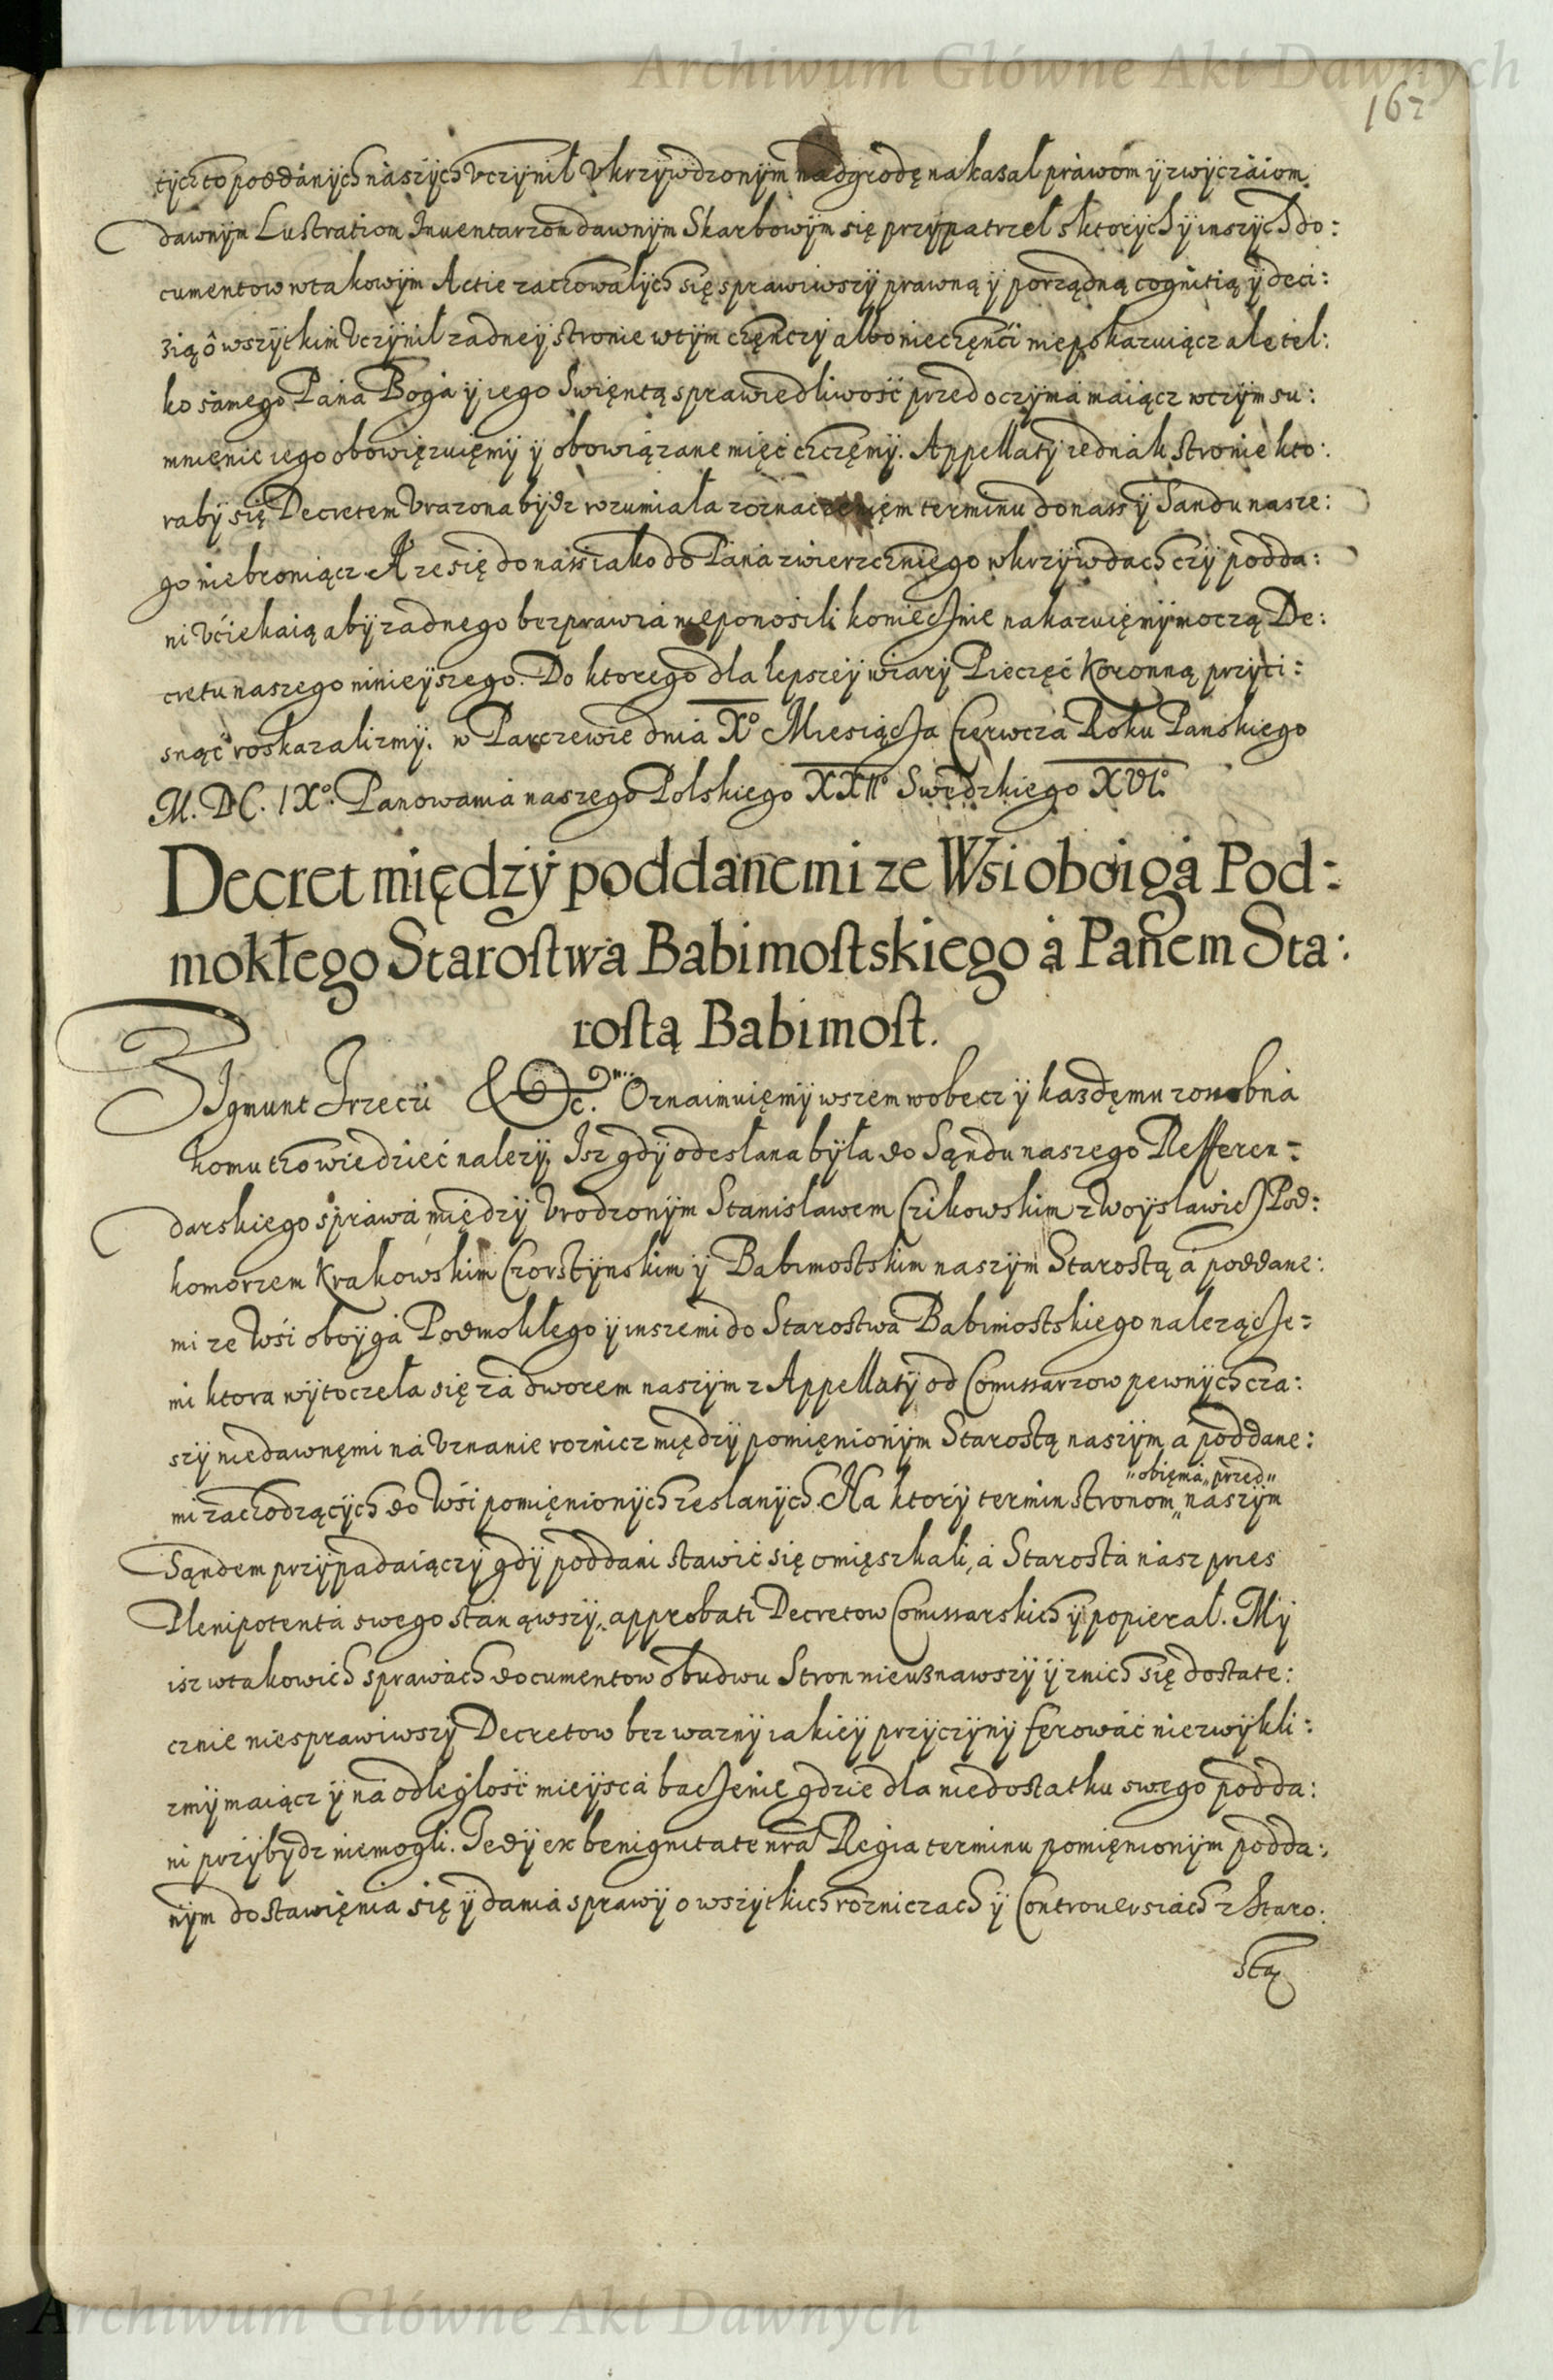 Archiwum Główne Akt Dawnych
162
tych to poddanÿch nászÿch vczÿnił vkrzÿwdzonÿm nadgrodę nakasał práwom ÿ zwÿczáiom
dawnÿm Lustratiom Inuentarzom dawnÿm Skarbowÿm się przÿpatrzeł s ktorÿch ÿ inszÿch do:
cumentow w takowÿm Actie zachowałÿch się sprawiwszÿ prawną ÿ porządną cognitią ÿ deci:
zią o wszÿtkim vczÿnił zadneÿ stronie w tÿm chęnczÿ albo niechęnci niepokazuiącz ale tel:
ko sámego Páná Bogá ÿ iego Swięntą sprawiedliwość przed oczÿmá máiącz w czÿm su:
mnięnie iego obowięzuięmÿ ÿ obowiązane mięć chczęmÿ. Appellatÿ iednák stronie kto:
rabÿ się Decretem vrazona bÿdz rozumiała z oznaczenięm terminu do nass ÿ Sandu nasze:
go niebroniącz A ze się do nass iako do Páná zwierzchniego w krzÿwdach czÿ podda:
ni vciekaią abÿ zadnego bezprawia nieponosili koniecznie nakazuięmÿ moczą De:
cretu naszego ninieÿszego. Do ktorego dla lepszeÿ wiarÿ Pieczęć Koronną przÿci:
snąć roskazalizmÿ. w Parczewie dnia Xo Miesiącza Czerwcza Roku Panskiego
M. DC. IXo. Panowania naszego Polskiego XXIIo Swedzkiego XVIo.
Decret międzÿ poddanemi ze Wsi oboigá Pod:
mokłego Starostwá Babimostskiego á Panem Sta:
rostą Babimost.
Zÿgmunt Trzeczi &c. Oznaimuięmÿ wszem wobecz ÿ kazdęmu zosobná
komu tho wiedzieć nalezÿ. Isz gdÿ odesłana bÿła do Sąndu naszego Refferen:
darskiego spráwá międzÿ vrodzonÿm Stanisławem Czikowskim z Woÿsławicz Pod:
komorzem Krakowskim Czorstÿnskim ÿ Babimostskim naszÿm Starostą á poddane:
mi ze Wsi oboÿgá Podmokłego ÿ inszemi do Starostwá Babimostskiego nalezącze:
mi ktora wÿtoczeła się zá dworem naszÿm z Appellatÿ od Comissarzow pewnÿch cza:
szÿ niedawnęmi ná vznanie roznicz międzÿ pomięnionÿm Starostą naszÿm á poddane:
mi zachodzącÿch do Wsi pomięnionÿch zesłanÿch. Na ktorÿ termin stronom naszÿm
obięmá przed
Sąndem przÿpadaiączÿ gdÿ poddani stawić się omięszkali, á Starostá nász przes
Plenipotentá swego stanąwszÿ, approbati Decretow Comissarskich ÿ popierał. Mÿ
isz w takowich sprawách documentow obudwu stron nieuznawszÿ ÿ z nich się dostate:
cznie niesprawiwszÿ Decretow bez waznÿ iakieÿ przÿczÿnÿ ferowáć niezwÿkli:
zmÿ maiącz ÿ ná odległość mieÿscá baczenie gdzie dla niedostatku swego podda:
ni przÿbÿdz niemogli. Tedÿ ex benignitate nra Regia terminu pomięnionÿm podda:
nÿm do stawięnia się ÿ dania sprawÿ o wszÿtkich rozniczach ÿ Controuersiách z Staro:
stą
Archiwum Główne Akt Dawnych